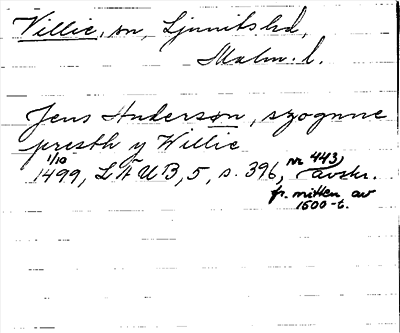 Villie, sn, Ljunits hd,
Malm. l.
Jens Anderson, szognne
presth y Villie
1/10 1499, LÄUB, 5, s. 396, nr 443, avskr.
fr. mitten av
1500-t.